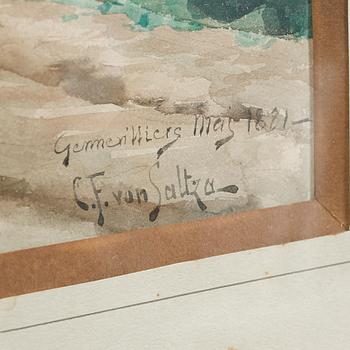 Gennevilliers May 1881-
C.F. von Saltza